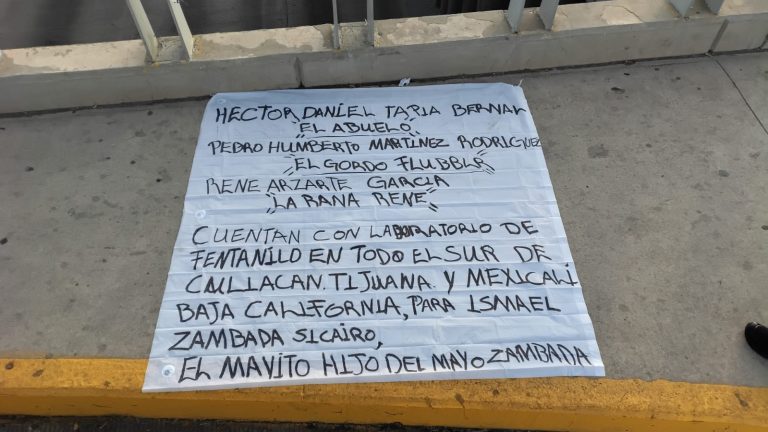 HECTOR DANIEL TAPIA BERNAL
"EL ABUELO"
PEDRO HUMBERTO MARTINEZ RODRIGUEZ
"EL GORDO FLUBBER"
RENE ARZARTE GARCIA
"LA RANA RENE"
CUENTAN CON LABORATORIO DE
FENTANILO EN TODO EL SUR DE
CULIACAN. TIJUANA. Y MEXICALI
BAJA CALIFORNIA, PARA ISMAEL
ZAMBADA SICAIRO,
EL MAYITO HIJO DEL MAYO ZAMBADA